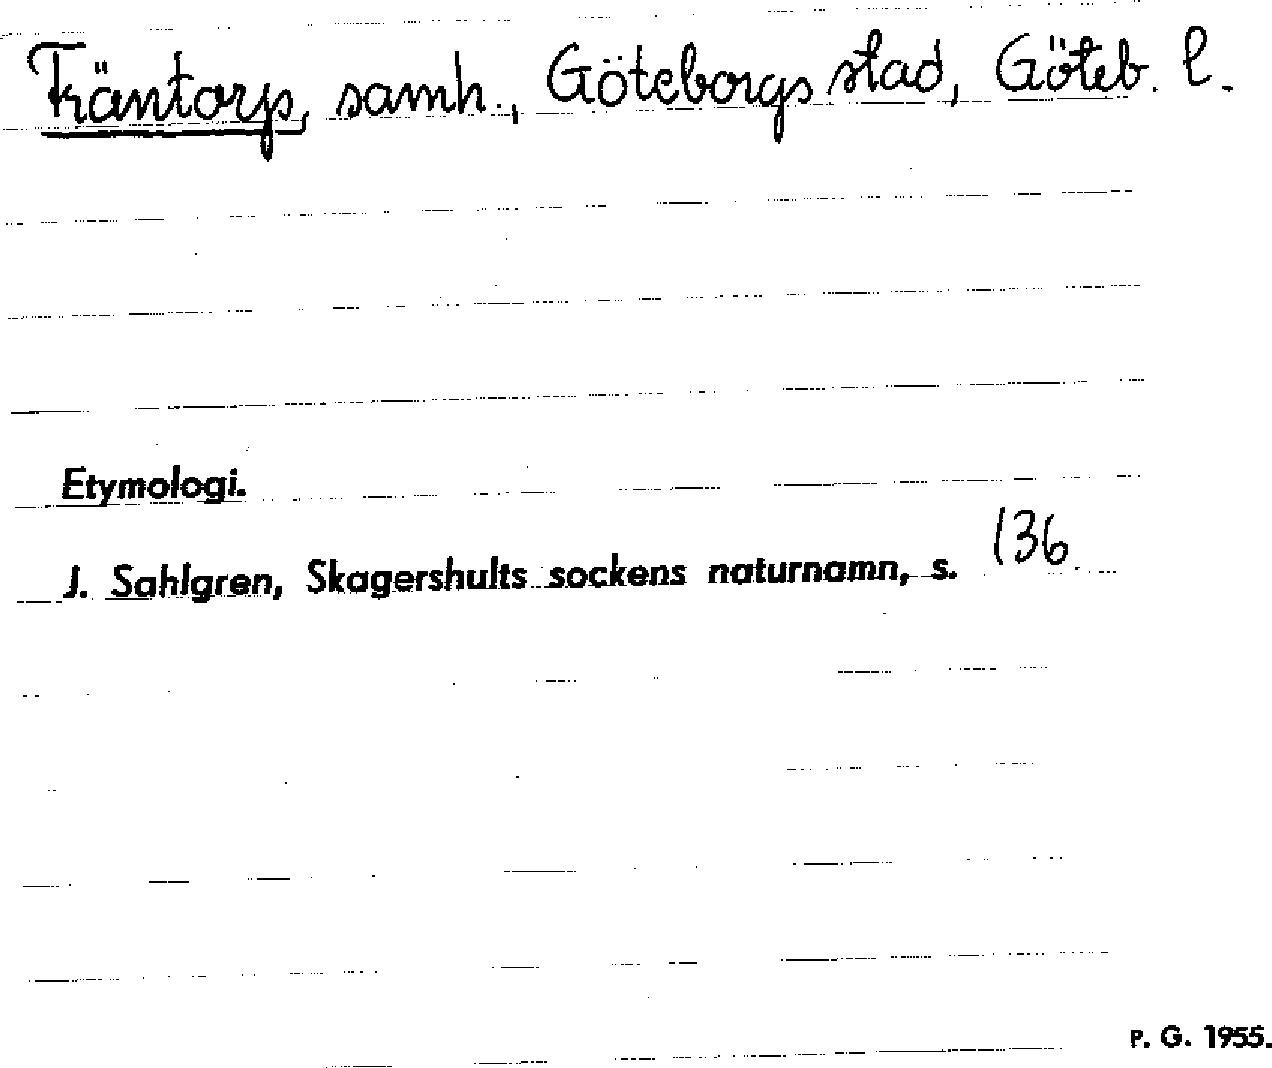 Fräntorp, samh., Göteborgs stad, Göteb. l.
Etymologi.
J. Sahlgren, Skagershults sockens naturnamn, s. 136.
P. G. 1955.